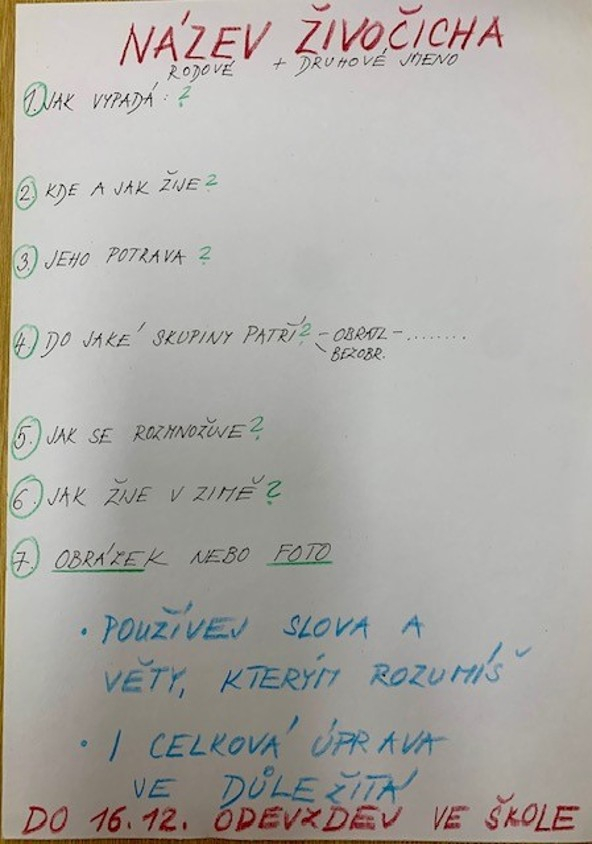 NÁZEV ŽIVOČICHA
RODOVÉ + DRUHOVÉ JMENO
1. JAK VYPADÁ: ?
2. KDE A JAK ŽIJE?
3. JEHO POTRAVA ?
4. DO JAKÉ SKUPINY PATŘÍ? - OBRATL - .......
BEZOBR.
5. JAK SE ROZMNOŽUJE?
6. JAK ŽIJE V ZIMĚ?
7. OBRÁZEK NEBO FOTO
• POUŽÍVEJ SLOVA A
VĚTY, KTERÝM ROZUMÍŠ
• I CELKOVÁ ÚPRAVA
VE DŮLEŽITÁ
DO 16.12. ODEVZDEV VE ŠKOLE